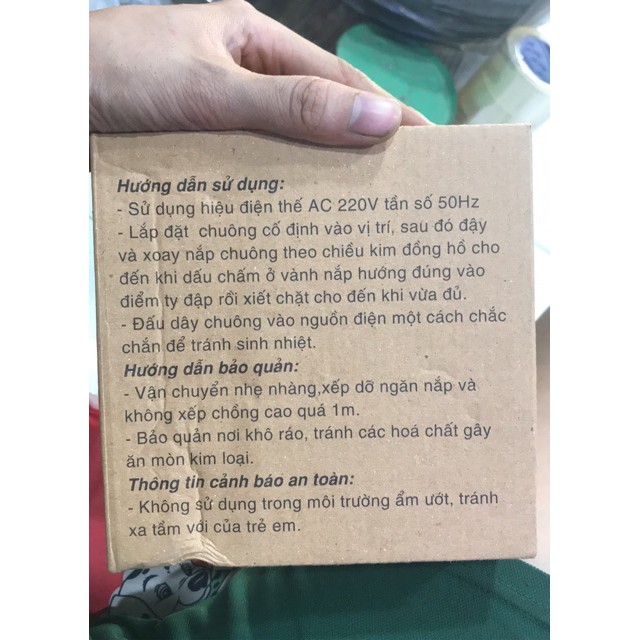 Hướng dẫn sử dụng:
- Sử dụng hiệu điện thế AC 220V tần số 50Hz
- Lắp đặt chuông cố định vào vị trí, sau đó đậy
và xoay nắp chuông theo chiều kim đồng hồ cho
đến khi dấu chấm ở vành nắp hướng đúng vào
điểm ty đập rồi xiết chặt cho đến khi vừa đủ.
- Đấu dây chuông vào nguồn điện một cách chắc
chắn để tránh sinh nhiệt.
Hướng dẫn bảo quản:
- Vận chuyển nhẹ nhàng,xếp dỡ ngăn nắp và
không xếp chồng cao quá 1m.
- Bảo quản nơi khô ráo, tránh các hoá chất gây
ăn mòn kim loại.
Thông tin cảnh báo an toàn:
- Không sử dụng trong môi trường ẩm ướt, tránh
xa tầm với của trẻ em.